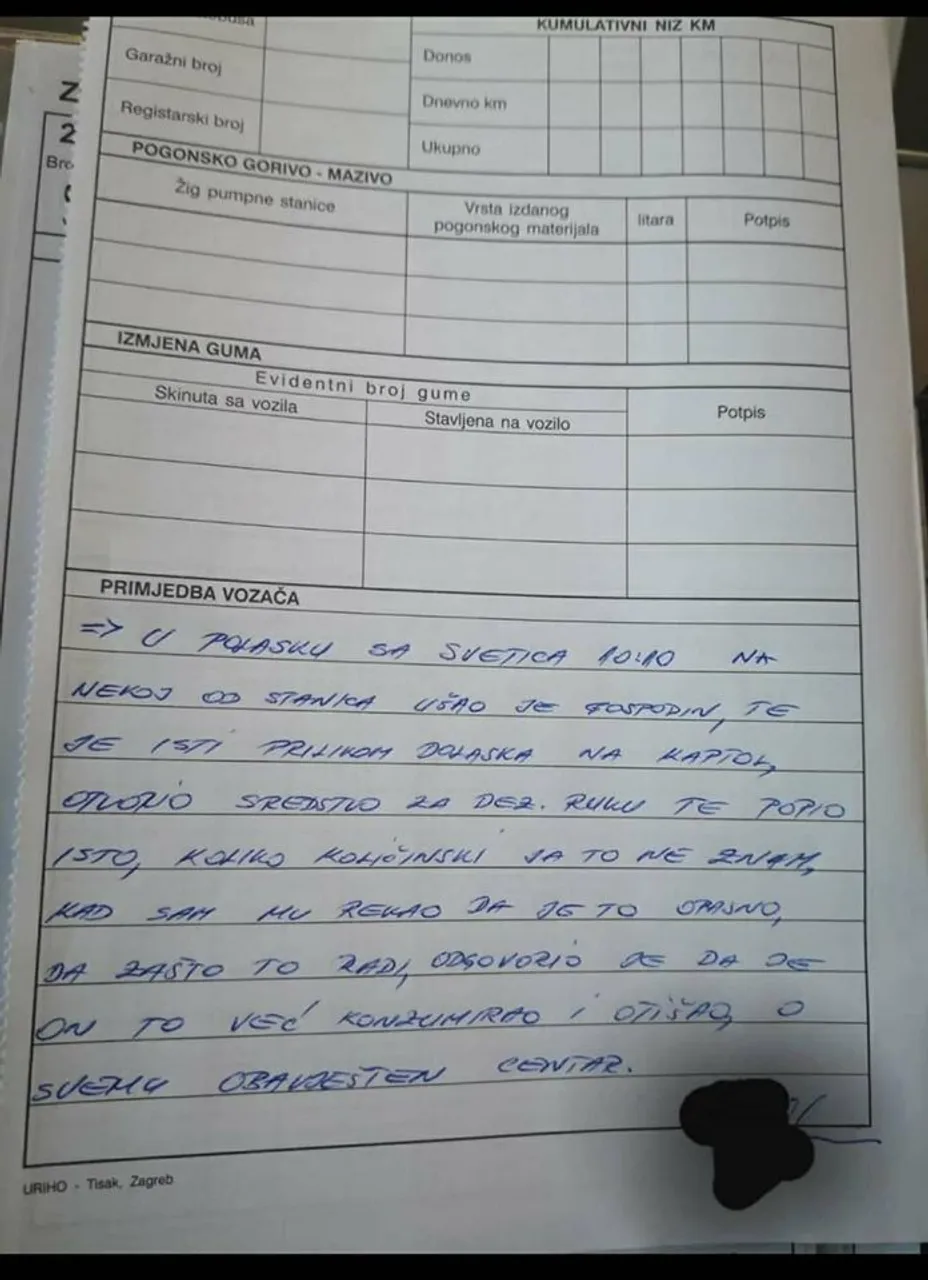 KUMULATIVNI NIZ KM
Garažni broj
Donos
Registarski broj
Dnevno km
Ukupno
Z
2
Bro
POGONSKO GORIVO - MAZIVO
Žig pumpne stanice
Vrsta izdanog
pogonskog materijala
litara
Potpis
IZMJENA GUMA
Evidentni broj gume
Skinuta sa vozila
Stavljena na vozilo
Potpis
PRIMJEDBA VOZAČA
=> U POLASKU SA SVETICA 10:10 NA
NEKOJ OD STANICA UŠAO JE GOSPODIN, TE
JE ISTI PRILIKOM DOLASKA NA KAPTOL,
OTVORIO SREDSTVO ZA DEZ. RUKU TE POPIO
ISTO, KOLIKO KOLIČINSKI JA TO NE ZNAM,
KAD SAM MU REKAO DA JE TO OPASNO,
DA ZAŠTO TO RADI, ODGOVORIO JE DA JE
ON TO VEĆ KONZUMIRAO I OTIŠAO, O
SVEMU OBAVJEŠTEN CENTAR.
URIHO - Tisak, Zagreb